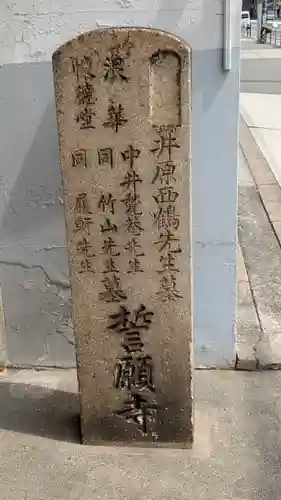 井原西鶴先生墓
浪華
中井甃菴先生
懐徳堂
同 竹山先生墓
同 履軒先生
誓願寺